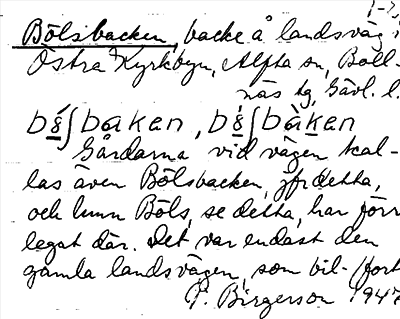 Bölsbacken, backe å landsväg i
Östra Kyrkbyn, Alfta sn, Boll-
näs tg, Gävl. l.
bö́ʃbàken, bö́ʃbàken
Gårdarna vid vägen kal-
las även Bölsbacken, jfr detta,
och hinn Böls, se detta, har förr
legat där. Det var endast den
gamla landsvägen, som bil- (fort
P. Birgerson 194